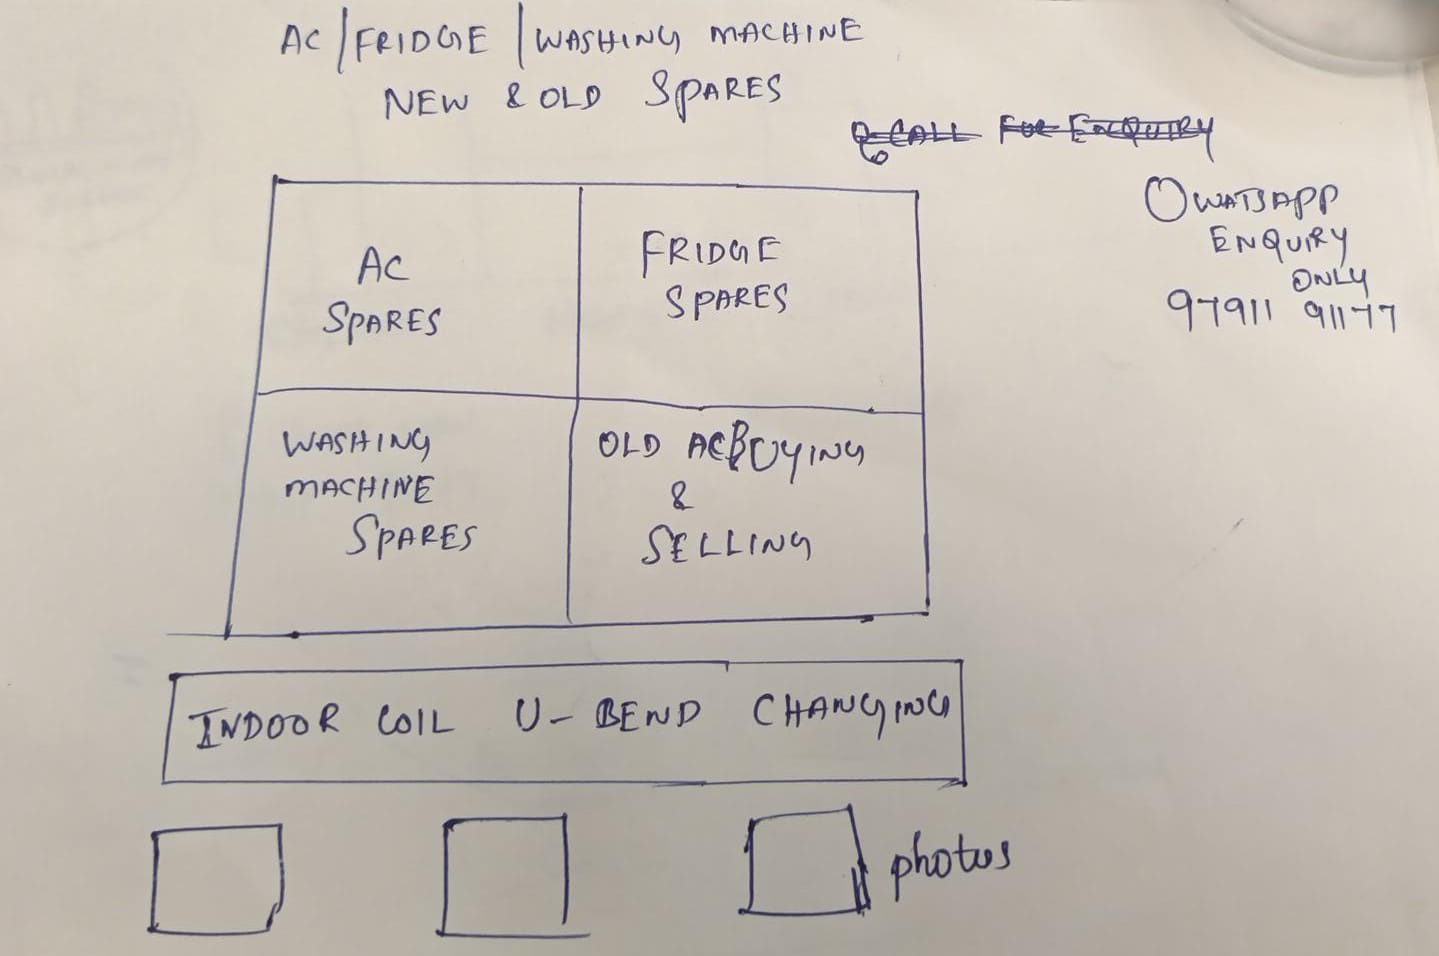 AC/FRIDGE/WASHING MACHINE
NEW & OLD SPARES
CALL FOR ENQUIRY
WATSAPP
ENQUIRY
ONLY
97911 91177
AC
SPARES
FRIDGE
SPARES
WASHING
MACHINE
SPARES
OLD AC BUYING
&
SELLING
INDOOR COIL U-BEND CHANGING
photos